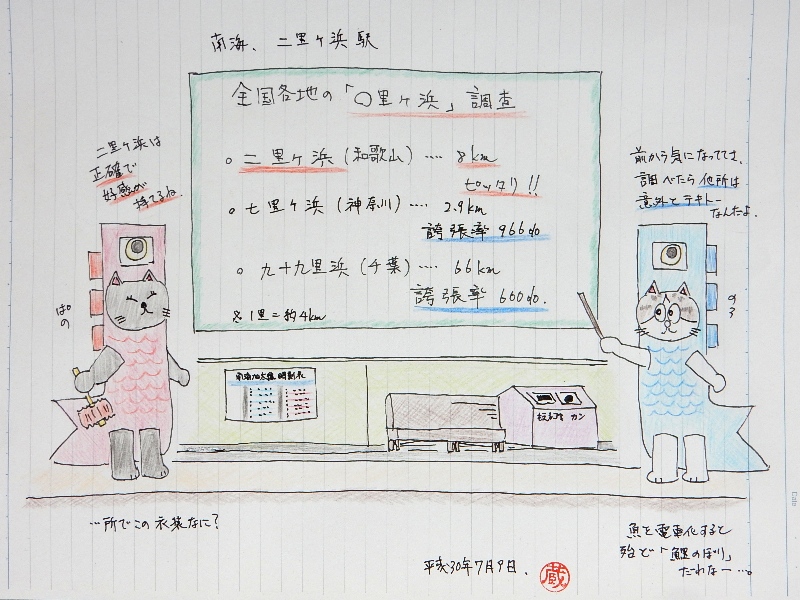 南海、二里ヶ浜駅
全国各地の「〇里ヶ浜」調査
。二里ヶ浜(和歌山)‥‥8km
ピッタリ!!
。七里ヶ浜(神奈川)‥‥2.9km
誇張率 966%
。九十九里浜(千葉)‥‥66km
誇張率 600%.
※1里=約4km
二里ヶ浜は
正確で
好感が
持てるね。
前から気になっててさ、
調べたら他所は
意外とテキトー
なんだよ。
ぱの
のろ
南海加太線 時刻表
カン
…所でこの衣装なに?
魚を電車化すると
殆ど「鯉のぼり」
だれなー…。
平成30年7月9日.
蔵